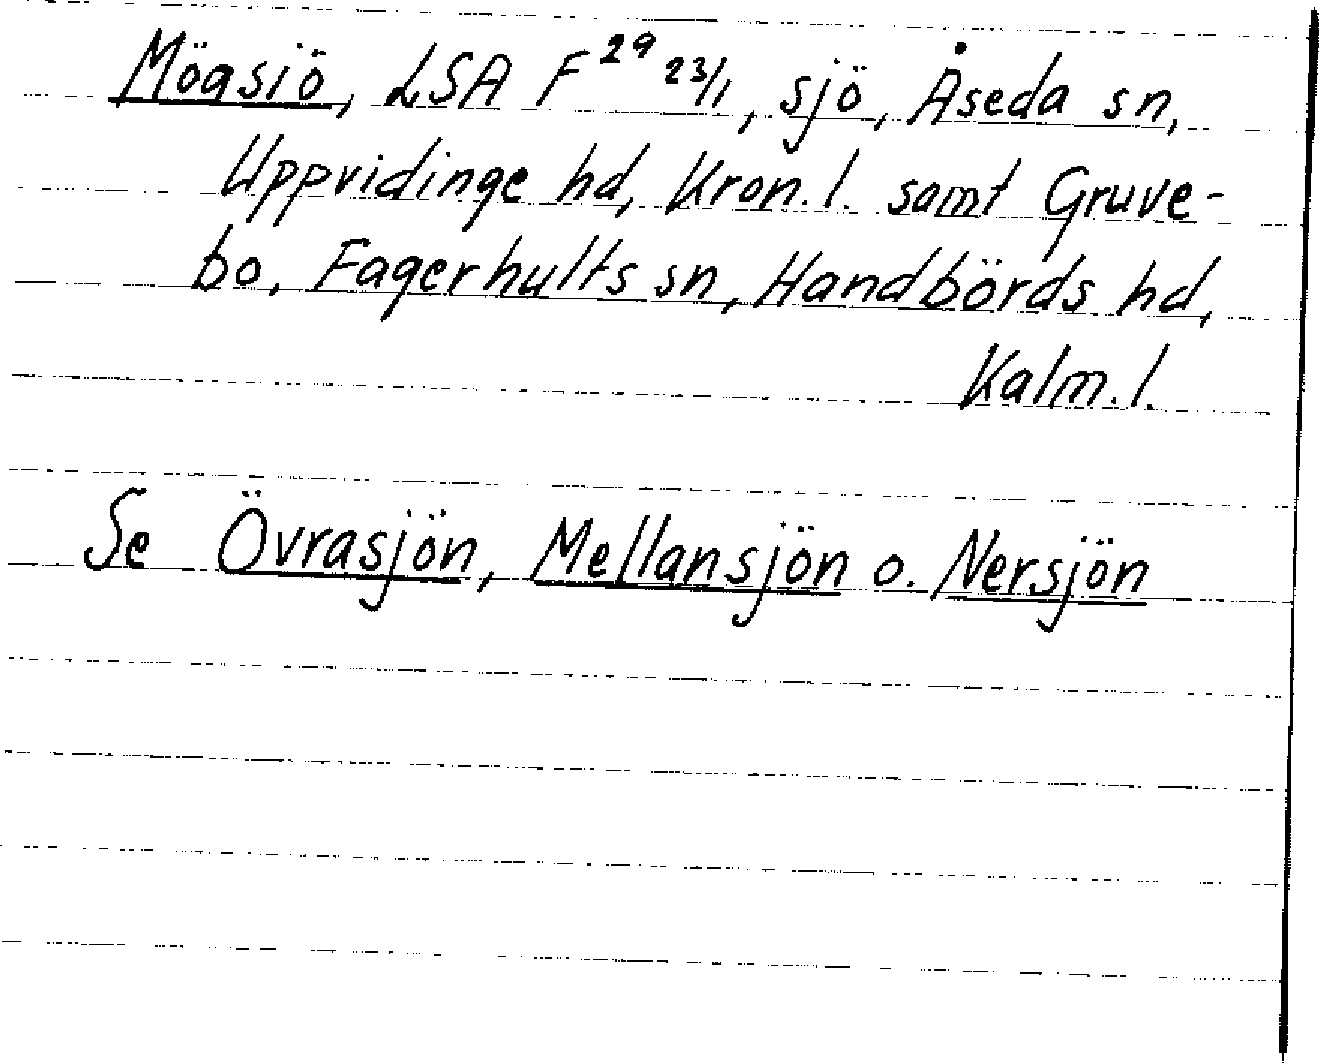 Mögsiö, LSA F²⁹ ²³/₁, sjö, Åseda sn,
Uppvidinge hd, Kron.l. samt Gruve-
bo, Fagerhults sn, Handbörds hd,
Kalm.l.
Se Övrasjön, Mellansjön o. Nersjön